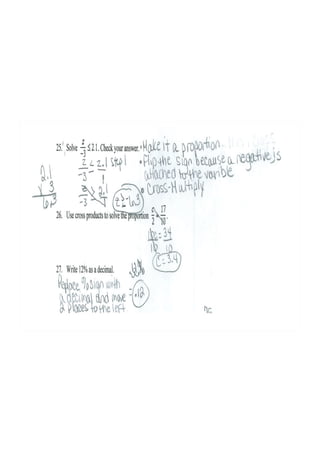 25. Solve z/-3 ≤ 2.1. Check your answer.
• Make it a proportion.
z/-3 ≤ 2.1/1 step 1
• Flip the sign because a negative is
attached to the varible
• Cross-Multiply
2.1
x 3
6.3
z/-3 2.1/1
z ≥ -6.3
26. Use cross products to solve the proportion
= 17/10
= 34
10 10
c = 3.4
27. Write 12% as a decimal.
12%
Replace % sign with
a decimal and move
2 places to the left
= .12